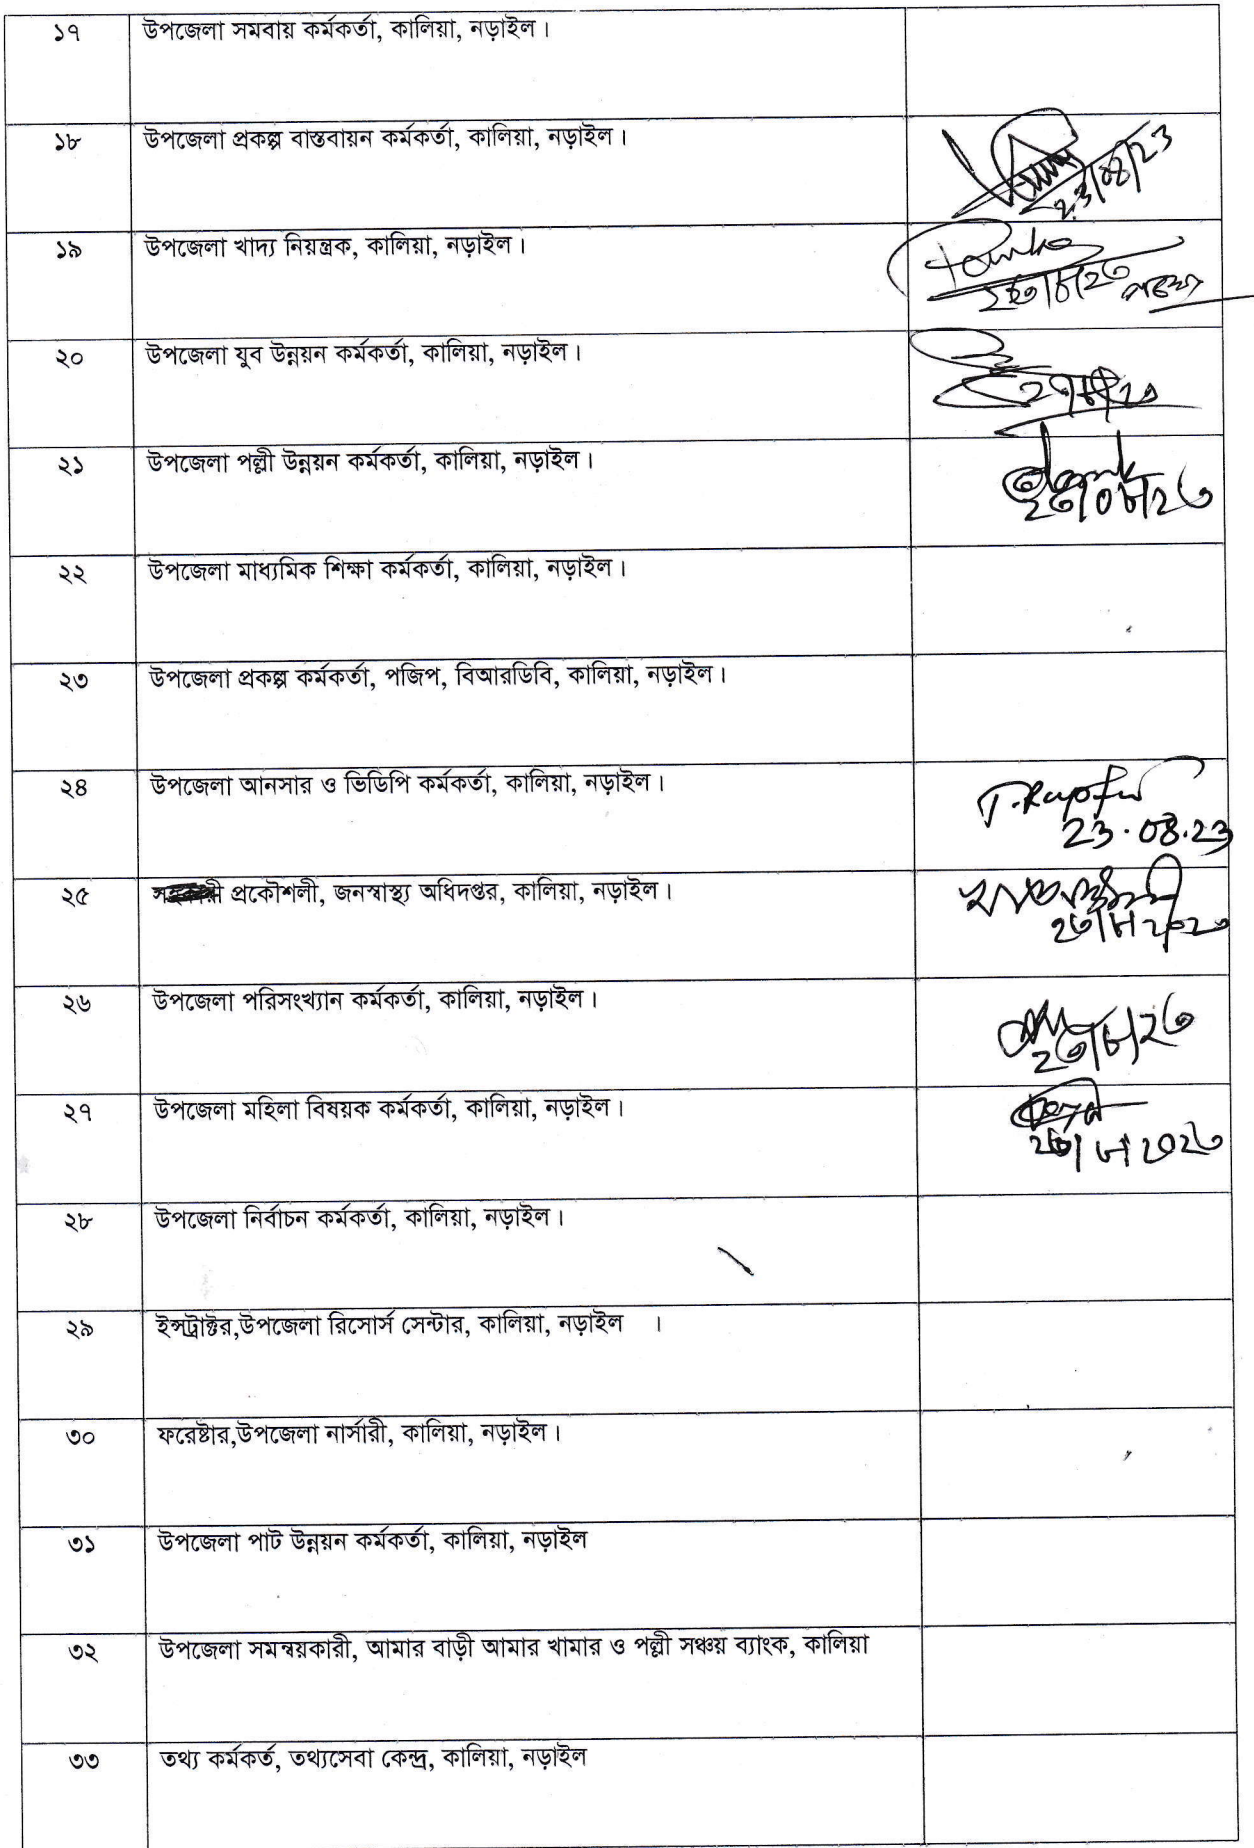 ১৭ উপজেলা সমবায় কর্মকর্তা, কালিয়া, নড়াইল।
১৮ উপজেলা প্রকল্প বাস্তবায়ন কর্মকর্তা, কালিয়া, নড়াইল।
23/08/23
১৯ উপজেলা খাদ্য নিয়ন্ত্রক, কালিয়া, নড়াইল।
২০ উপজেলা যুব উন্নয়ন কর্মকর্তা, কালিয়া, নড়াইল।
২১ উপজেলা পল্লী উন্নয়ন কর্মকর্তা, কালিয়া, নড়াইল।
২৩/০৮/২৩
২২ উপজেলা মাধ্যমিক শিক্ষা কর্মকর্তা, কালিয়া, নড়াইল।
২৩ উপজেলা প্রকল্প কর্মকর্তা, পজিপ, বিআরডিবি, কালিয়া, নড়াইল।
২৪ উপজেলা আনসার ও ভিডিপি কর্মকর্তা, কালিয়া, নড়াইল।
23.08.23
২৫ প্রকৌশলী, জনস্বাস্থ্য অধিদপ্তর, কালিয়া, নড়াইল।
২৩/৮/২০২৩
২৬ উপজেলা পরিসংখ্যান কর্মকর্তা, কালিয়া, নড়াইল।
২৩/৮/২৩
২৭ উপজেলা মহিলা বিষয়ক কর্মকর্তা, কালিয়া, নড়াইল।
২৩/৮/২০২৩
২৮ উপজেলা নির্বাচন কর্মকর্তা, কালিয়া, নড়াইল।
২৯ ইন্সট্রাক্টর,উপজেলা রিসোর্স সেন্টার, কালিয়া, নড়াইল ।
৩০ ফরেষ্টার,উপজেলা নার্সারী, কালিয়া, নড়াইল।
৩১ উপজেলা পাট উন্নয়ন কর্মকর্তা, কালিয়া, নড়াইল
৩২ উপজেলা সমন্বয়কারী, আমার বাড়ী আমার খামার ও পল্লী সঞ্চয় ব্যাংক, কালিয়া
৩৩ তথ্য কর্মকর্ত, তথ্যসেবা কেন্দ্র, কালিয়া, নড়াইল